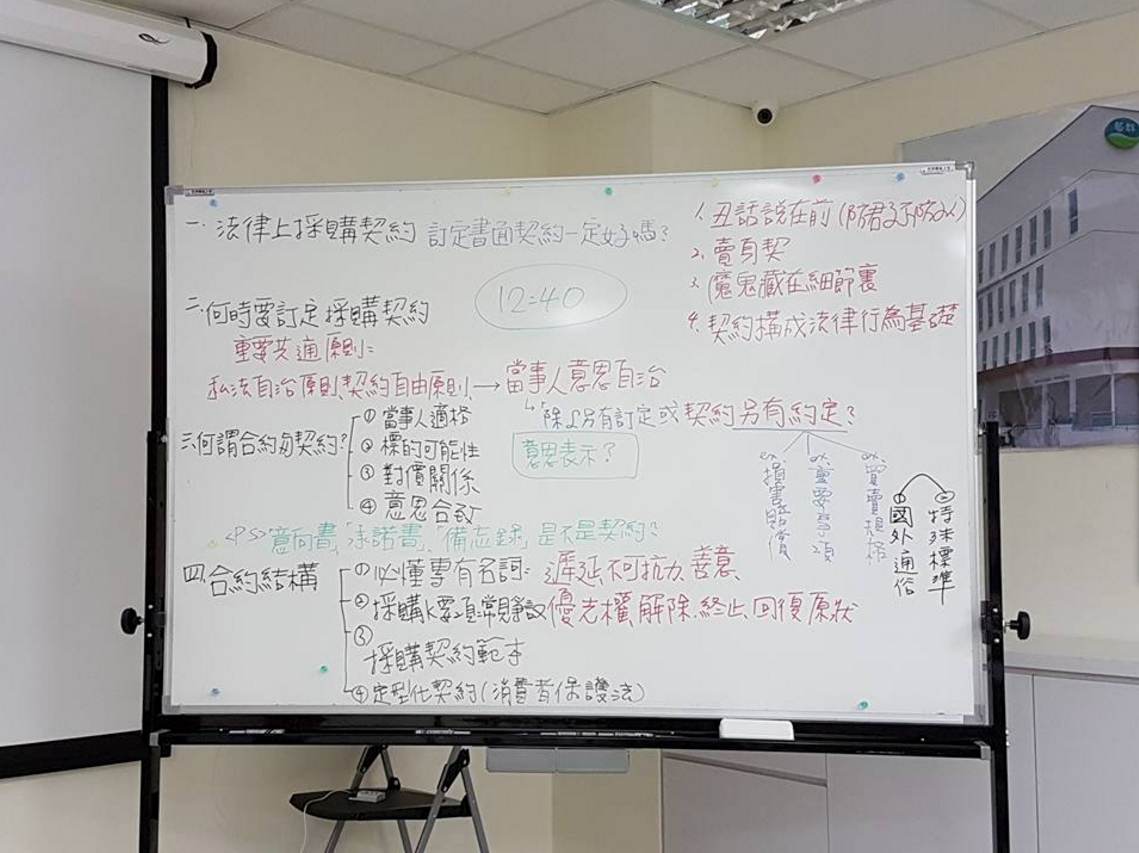 一、法律上採購契約 訂定書面契約一定好嗎?
1. 丑話説在前(防君子不防小人)
2. 賣身契
3. 魔鬼藏在細節裏
4. 契約構成法律行為基礎
12:40
二、何時要訂定採購契約
重要共通原則:
私法自治原則、契約自由原則、→當事人意思自治
↳"除另有訂定或契約另有約定?
意思表示?
ex. 損害賠償
ex. 重要事項
ex. 買賣規格
①國外通俗
②特殊標準
三、何謂合約与契約?
① 當事人適格
② 標的可能性
③ 對價關係
④ 意思合致
<PS>"意向書"、"承諾書"、備忘錄, 是不是契約?
四、合約結構
① 必懂專有名詞: 遲延、不可抗力、善意、
② 採購大要項常見爭議 優先權、解除、終止、回復原狀
③ 採購契約範本
④ 定型化契約(消費者保護法)